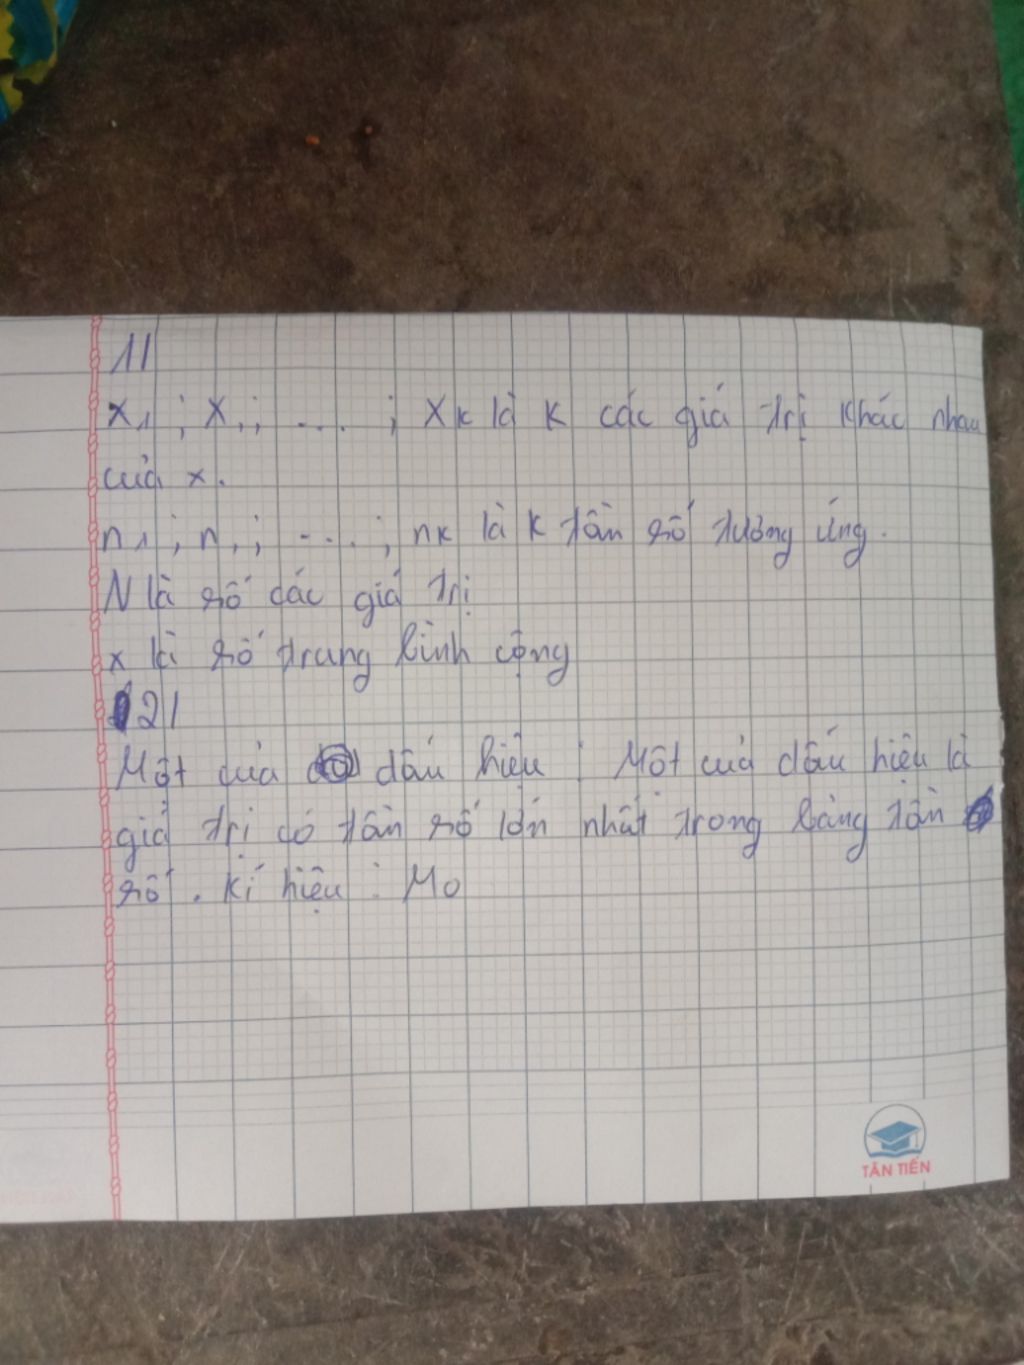 1/
x1; x,; ....; xk là k các giá trị khác nhau
của x.
n1; n,; ....; nk là k tần số tương ứng.
N là số các giá trị
x là số trung bình cộng
2/
Mốt của dấu hiệu : Mốt của dấu hiệu là
giá trị có tần số lớn nhất trong bảng tần
số. Kí hiệu : Mo
TÂN TIẾN